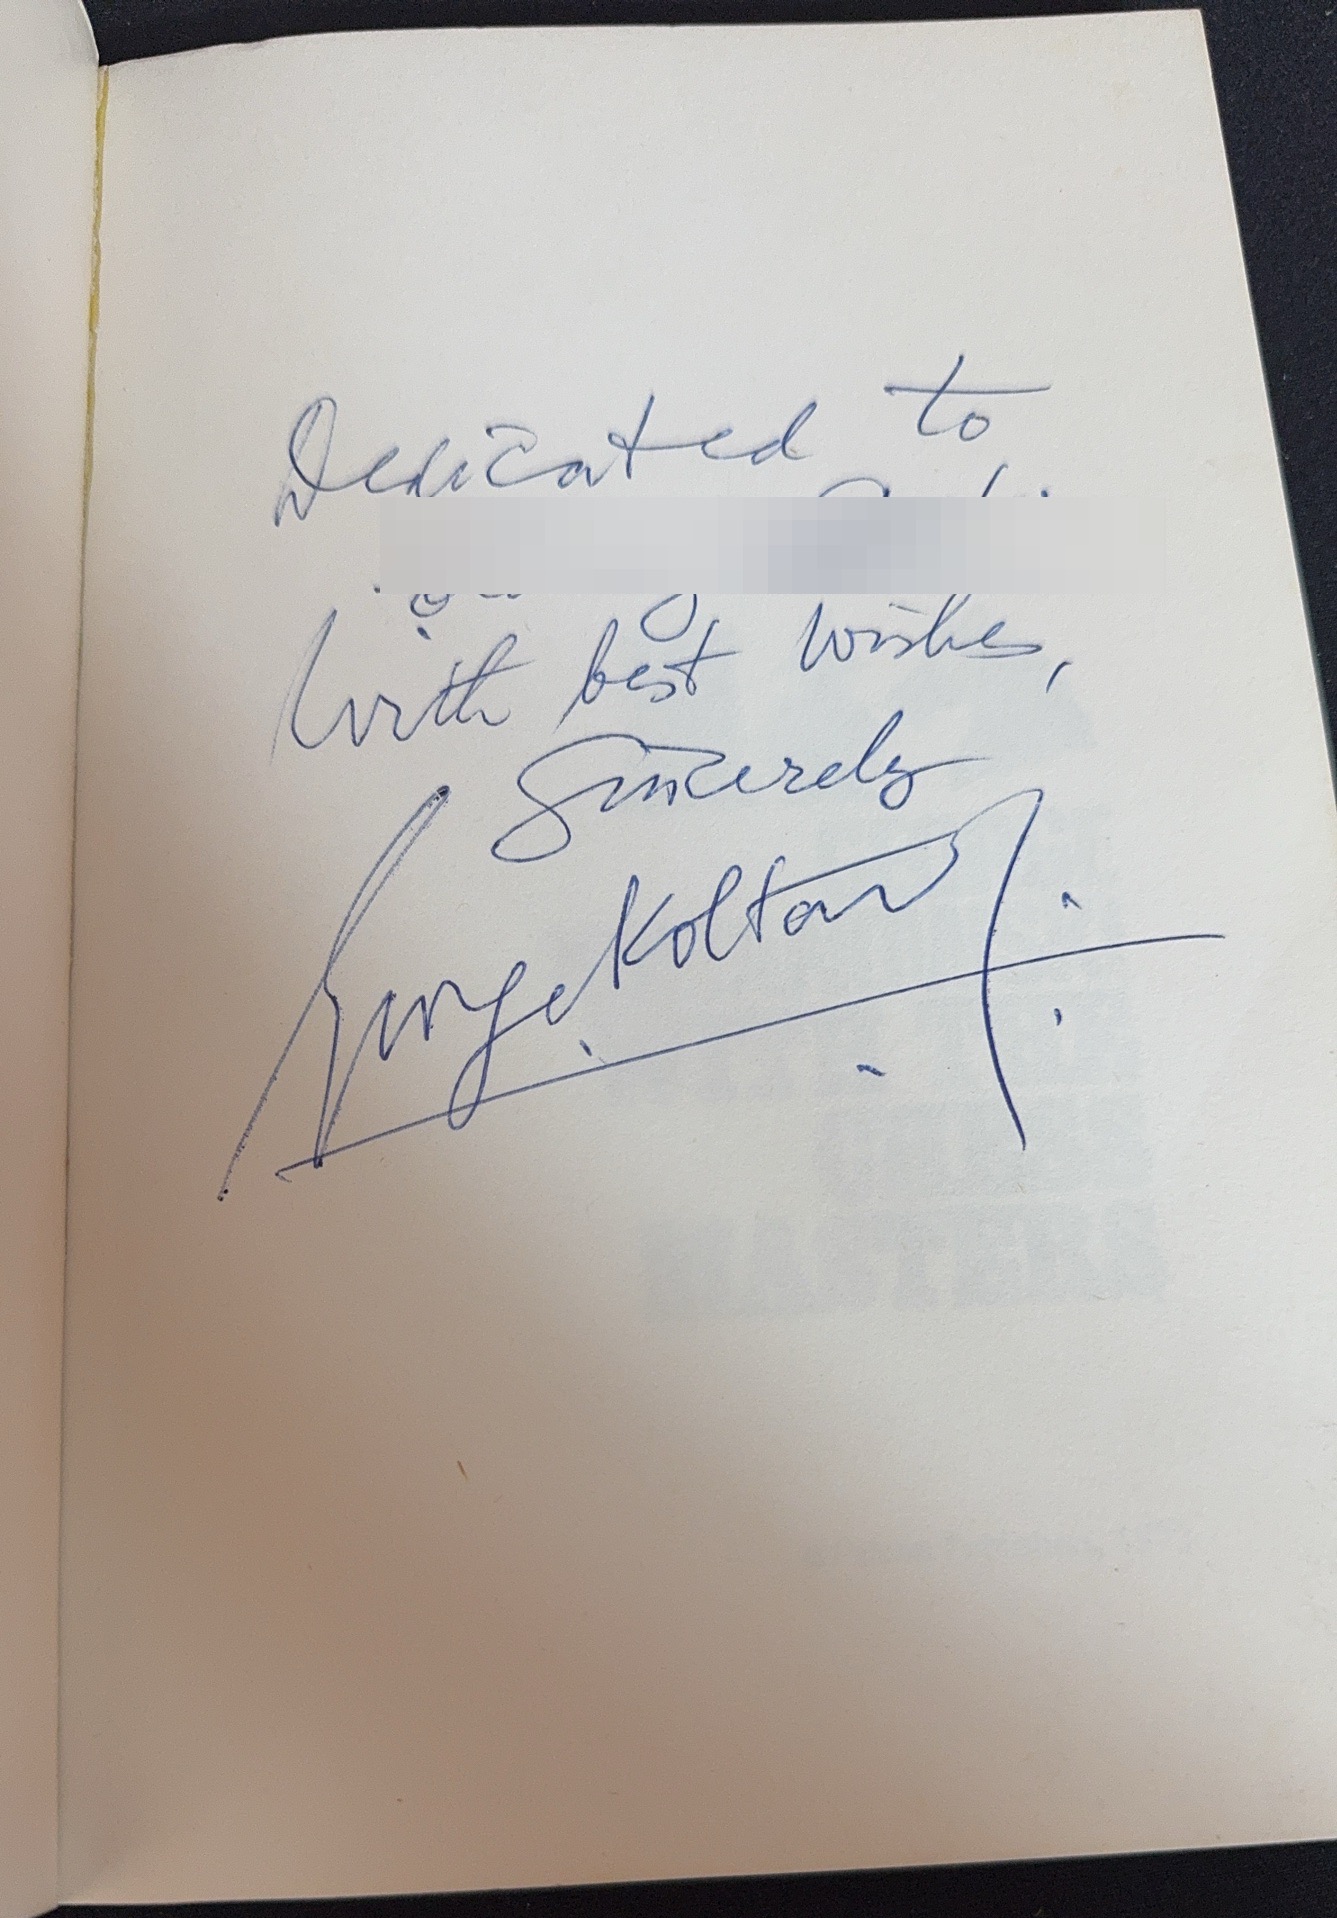 Dedicated to
With best wishes,
Sincerely
George Koltanowski